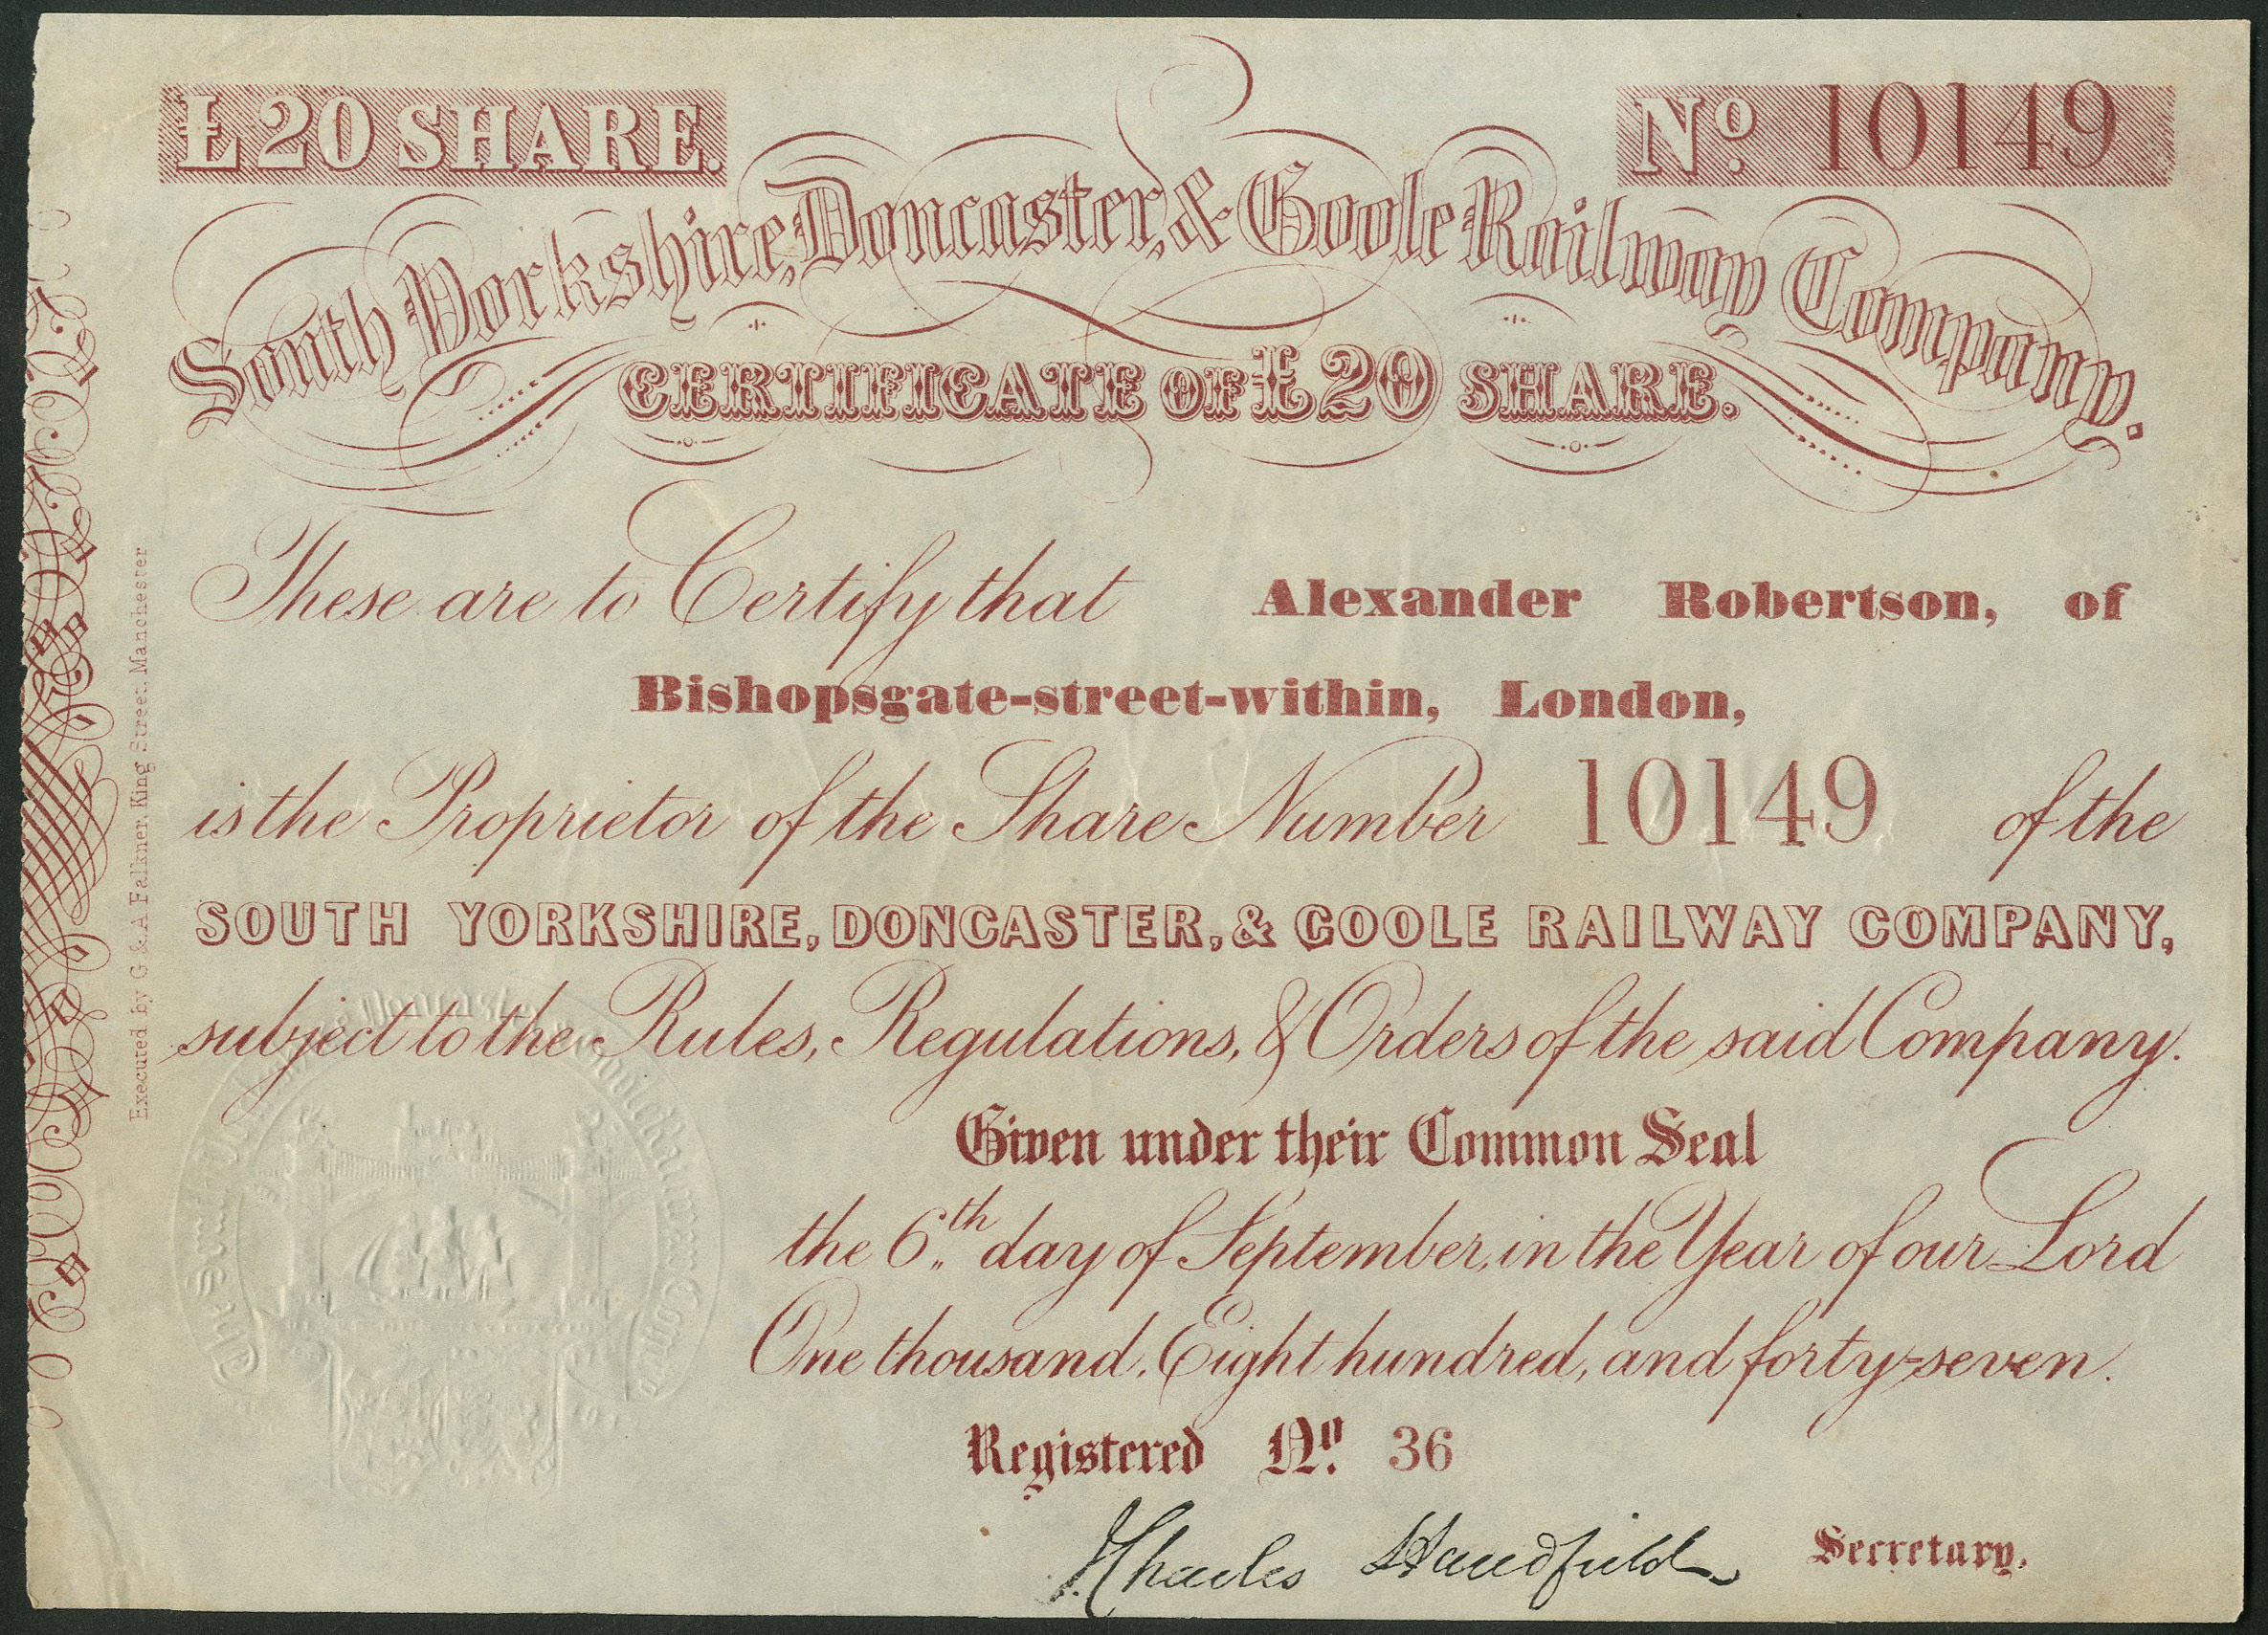 £20 SHARE.
No. 10149
South Yorkshire, Doncaster, & Goole Railway Company.
CERTIFICATE OF £20 SHARE.
These are to Certify that Alexander Robertson, of
Bishopsgate-street-within, London,
is the Proprietor of the Share Number 10149 of the
SOUTH YORKSHIRE, DONCASTER, & GOOLE RAILWAY COMPANY,
subject to the Rules, Regulations, & Orders of the said Company.
Given under their Common Seal
the 6th day of September, in the Year of our Lord
One thousand, Eight hundred, and forty-seven.
Registered No. 36
Charles Handfield Secretary.
Executed by G & A Falkner, King Street, Manchester
Doncaster Goole Railway Compy